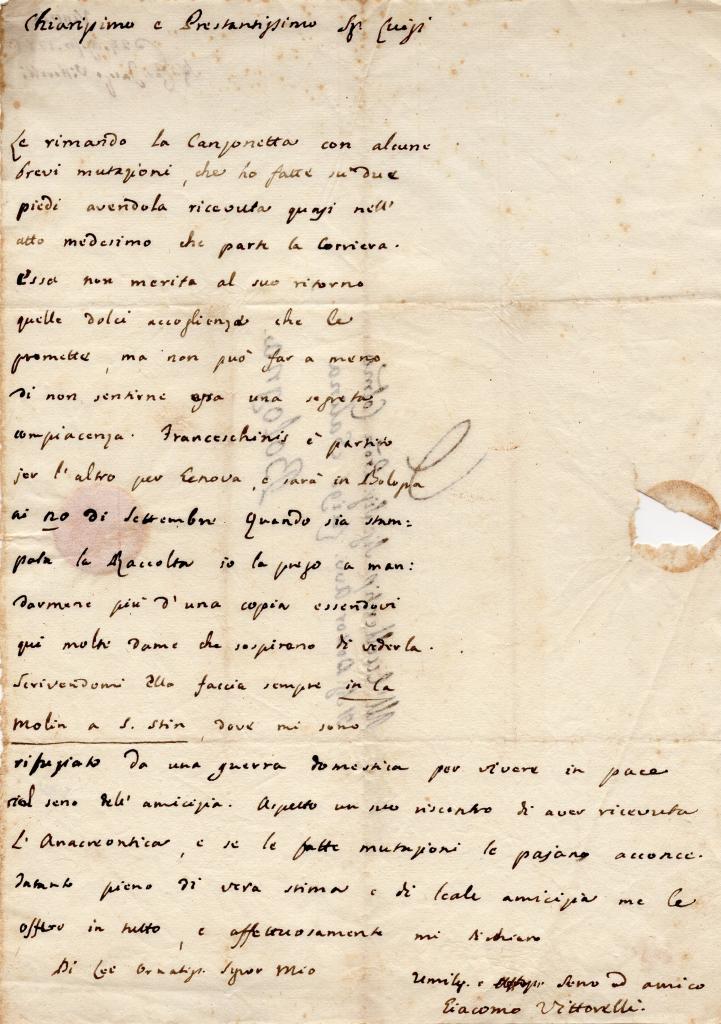 Chiarissimo e Prestantissimo Sigr Luigi
Le rimando la Canzonetta con alcune
brevi mutazioni, che ho fatte su due
piedi avendola ricevuta quasi nell'
atto medesimo che parte la Corriera.
Essa non merita al suo ritorno
quelle dolci accoglienze che le
promette, ma non può far a meno
di non sentirne essa una segreta
compiacenza. Franceschinis è partito
jer l'altro per Genova, e sarà in Bologna
ai 20 di Settembre. Quando sia stam=
pata la Raccolta io la prego a man:
darmene più d'una copia essendovi
qui molte dame che sospirano di vederla.
Scrivendomi Ella faccia sempre in Ca
Molin a S. Stin, dove mi sono
rifugiato da una guerra domestica per vivere in pace
nel seno dell'amicizia. Aspetto un suo riscontro di aver ricevuta
L'Anacreontica, e se le fatte mutazioni le pajano acconce.
Intanto pieno di vera stima e di leale amicizia me le
offero in tutto, e affettuosamente mi dichiaro
Di Lei Ornatiss. Signor Mio
Umiliss. e Servo ed amico
Giacomo Vittorelli.